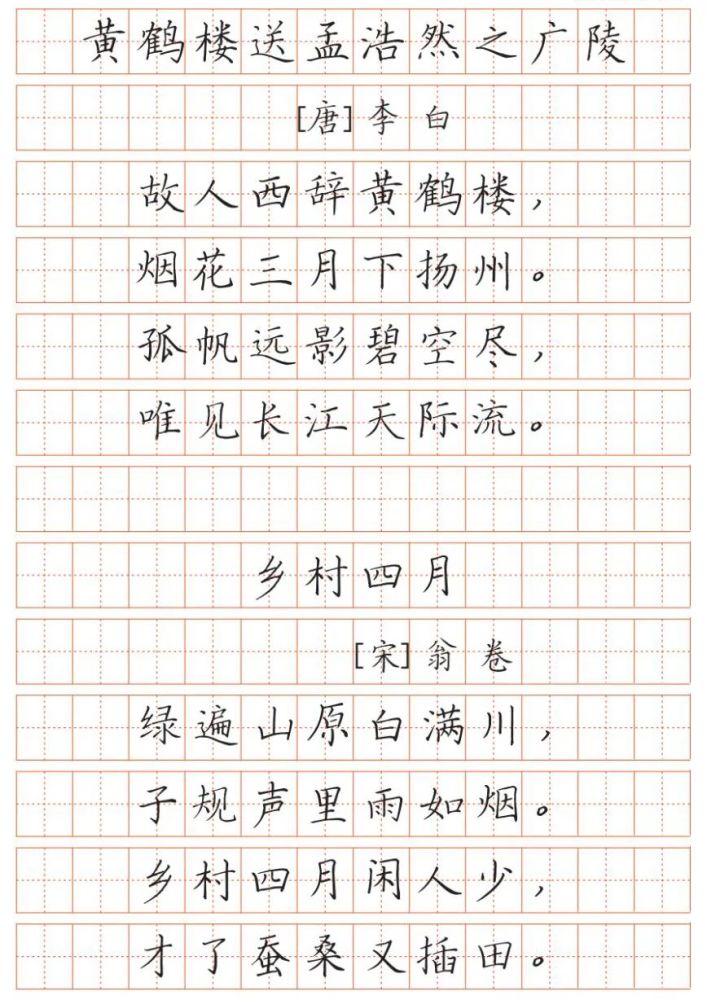 黄鹤楼送孟浩然之广陵
[唐]李白
故人西辞黄鹤楼，
烟花三月下扬州。
孤帆远影碧空尽，
唯见长江天际流。
乡村四月
[宋]翁卷
绿遍山原白满川，
子规声里雨如烟。
乡村四月闲人少，
才了蚕桑又插田。